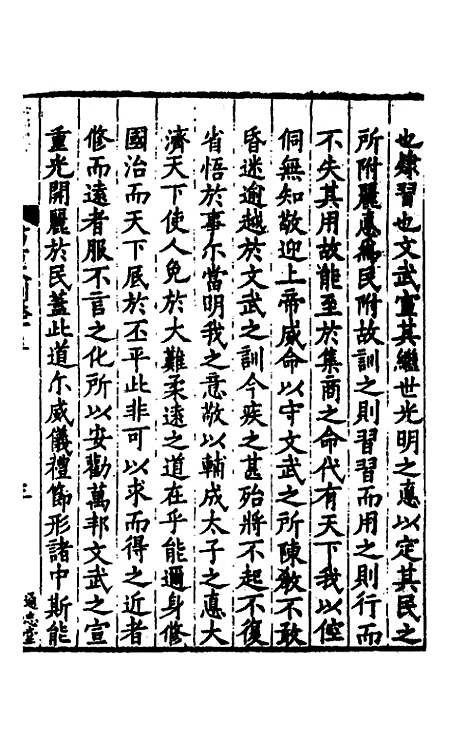 也肄習也文武宣其繼世光明之悳以定其民之
所附麗悳爲民附故訓之則習習而用之則行而
不失其用故能至於集商之命代有天下我以倥
侗無知敬迎上帝威命以守文武之所陳敎不敢
昏迷逾越於文武之訓今疾之甚殆將不起不復
省悟於事尒當明我之意敬以輔成太子之悳大
濟天下使人免於大難柔遠之道在乎能邇身修
國治而天下底於丕平此非可以求而得之近者
修而遠者服不言之化所以安勸萬邦文武之宣
重光開麗於民蓋此道尒威儀禮節形諸中斯能
通志堂